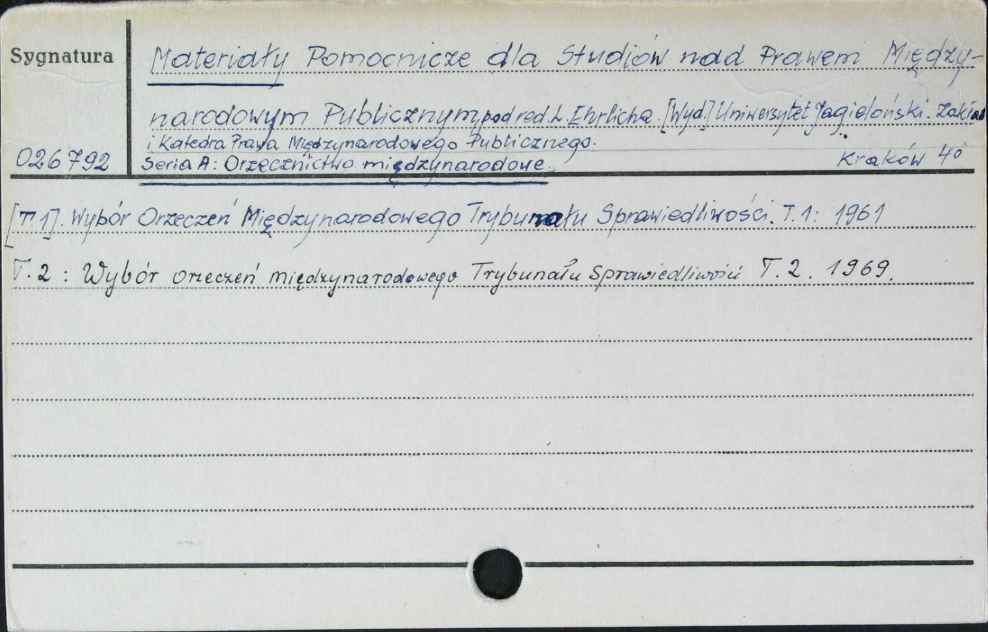 Sygnatura
Materiały Pomocnicze dla Studiów nad Prawem Między-
narodowym Publicznym pod red. L. Ehrlicha. [Wyd.] Uniwersytet Jagieloński. Zakład
i Katedra Prawa Międzynarodowego Publicznego.
026792 Seria A: Orzecznictwo międzynarodowe. Kraków 4°
[T. 1]. Wybór Orzeczeń Międzynarodowego Trybunału Sprawiedliwości. T. 1: 1961
T. 2 : Wybór orzeczeń międzynarodowego Trybunału Sprawiedliwości T. 2. 1969.